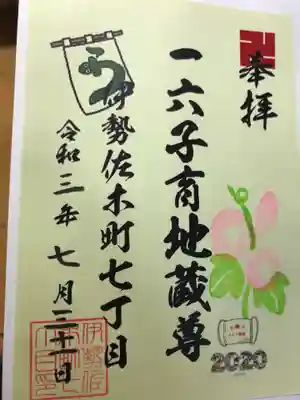 奉拝
一六子育地蔵尊
う
伊勢佐木町七丁目
令和三年七月三十一日
2020